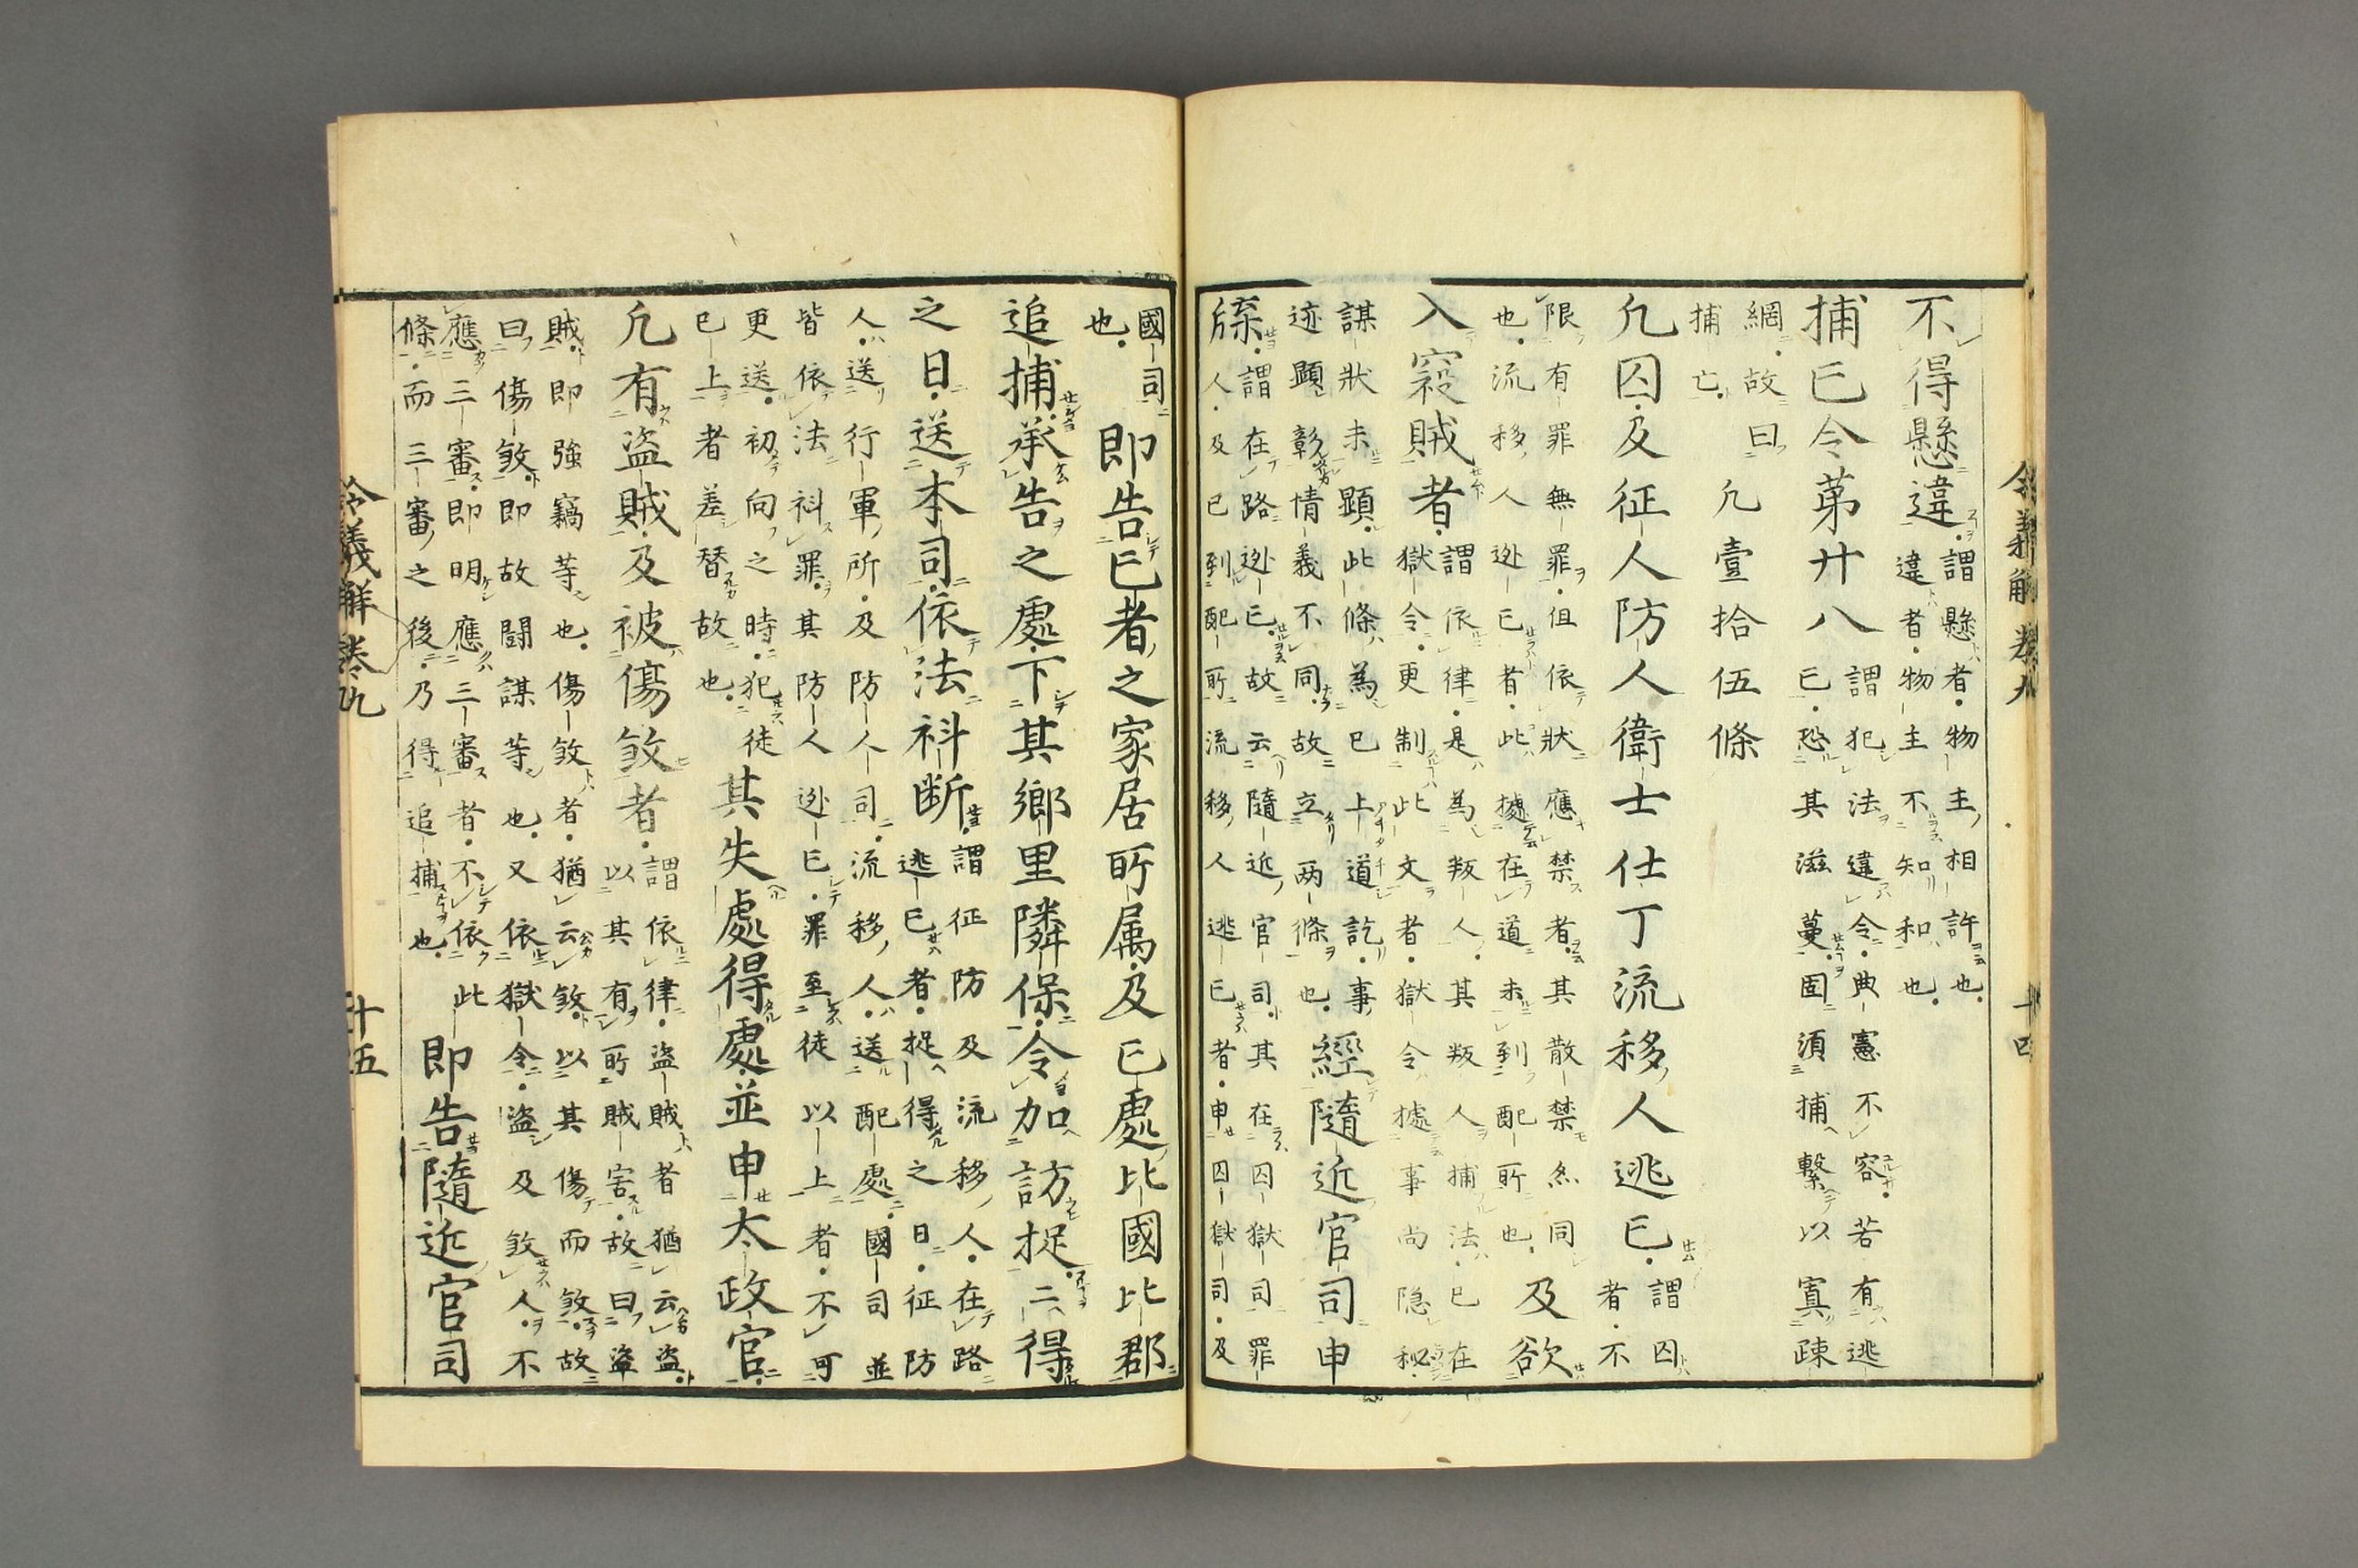 令義解 巻九 十四
不得懸違謂懸者物主相許也違者物主不知和也
捕亡令第廿八謂犯法違令典憲不容若有逃亡恐其滋蔓固須捕繫以寘疎
網故曰捕亡凡壹拾伍條
凡囚及征人防人衛士仕丁流移人逃亡謂囚者不
限有罪無罪但依狀應禁者其散禁亦同也流移人逃亡者此據在道未到配所也及欲
入寇賊者謂依律是為叛人其叛人捕法已在獄令更制此文者獄令據事尚隠秘
謀狀未顕此條為已上道訖事迹顕彰情義不同故立兩條也經隨近官司申
牒謂在路逃亡故云隨近官司其在囚獄司罪人及已到配所流移人逃亡者申囚獄司及
國司也即告亡者之家居所属及亡處比國比郡
追捕承告之處下其鄉里隣保令加訪捉二得
之日送本司依法科断謂征防及流移人在路逃亡者捉得之日征防
人送行軍所及防人司流移人送配處國司並皆依法科罪其防人逃亡罪至徒以上者不可
更送初向之時犯徒已上者差替故也其失處得處並申太政官
凡有盗賊及被傷煞者謂依律盗賊者猶云盗以其有所賊害故曰盗
賊即強竊等也傷煞者猶云煞以其傷而煞故曰傷煞即故闘謀等也又依獄令盗及煞人不
應三審即明應三審者不依此條而三審之後乃得追捕也即告隨近官司
令義解 巻九 十五